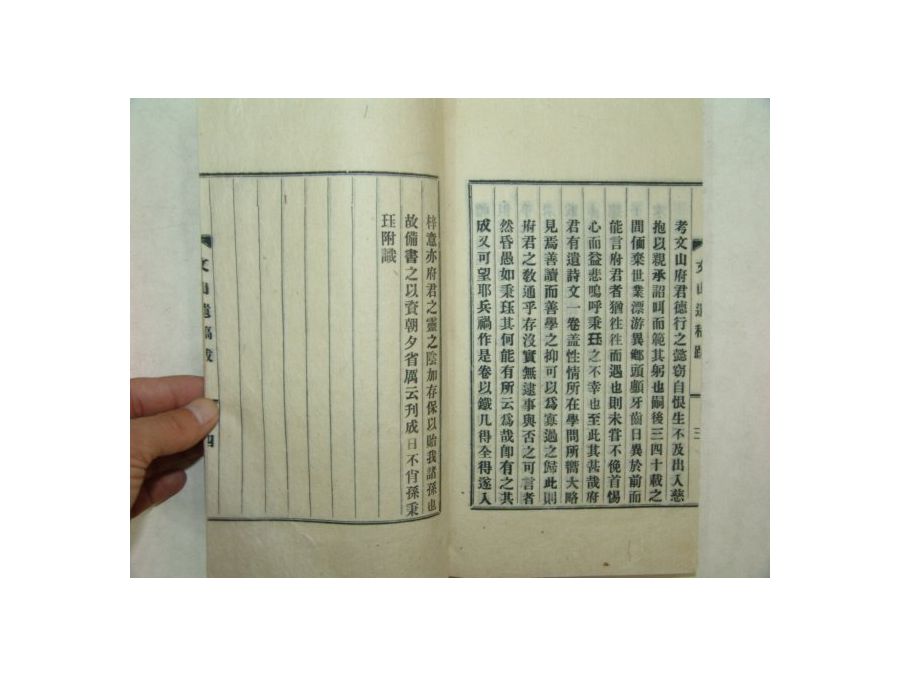 考文山府君德行之懿窃自恨生不及出入慈
抱以親承詔叫而範其躬也嗣後三四十載之
間価棄世業漂游異鄕頭顱牙齒日異於前而
能言府君者猶徃徃而遇也則未甞不俛首惕
心而益悲嗚呼秉珏之不幸也至此其甚哉府
君有遺詩文一卷盖性情所在學問所嚮大略
見焉善讀而善學之抑可以爲寡過之歸此則
府君之敎通乎存沒實無逮事與否之可言者
然昏愚如秉珏其何能有所云爲哉卽有之其
成又可望耶兵禍作是卷以鐵几得全得遂入
文山遺稿跋
三
梓意亦府君之靈之陰加存保以貽我諸孫也
故備書之以資朝夕省厲云刋成日不肖孫秉
珏附識
文山遺稿跋
四